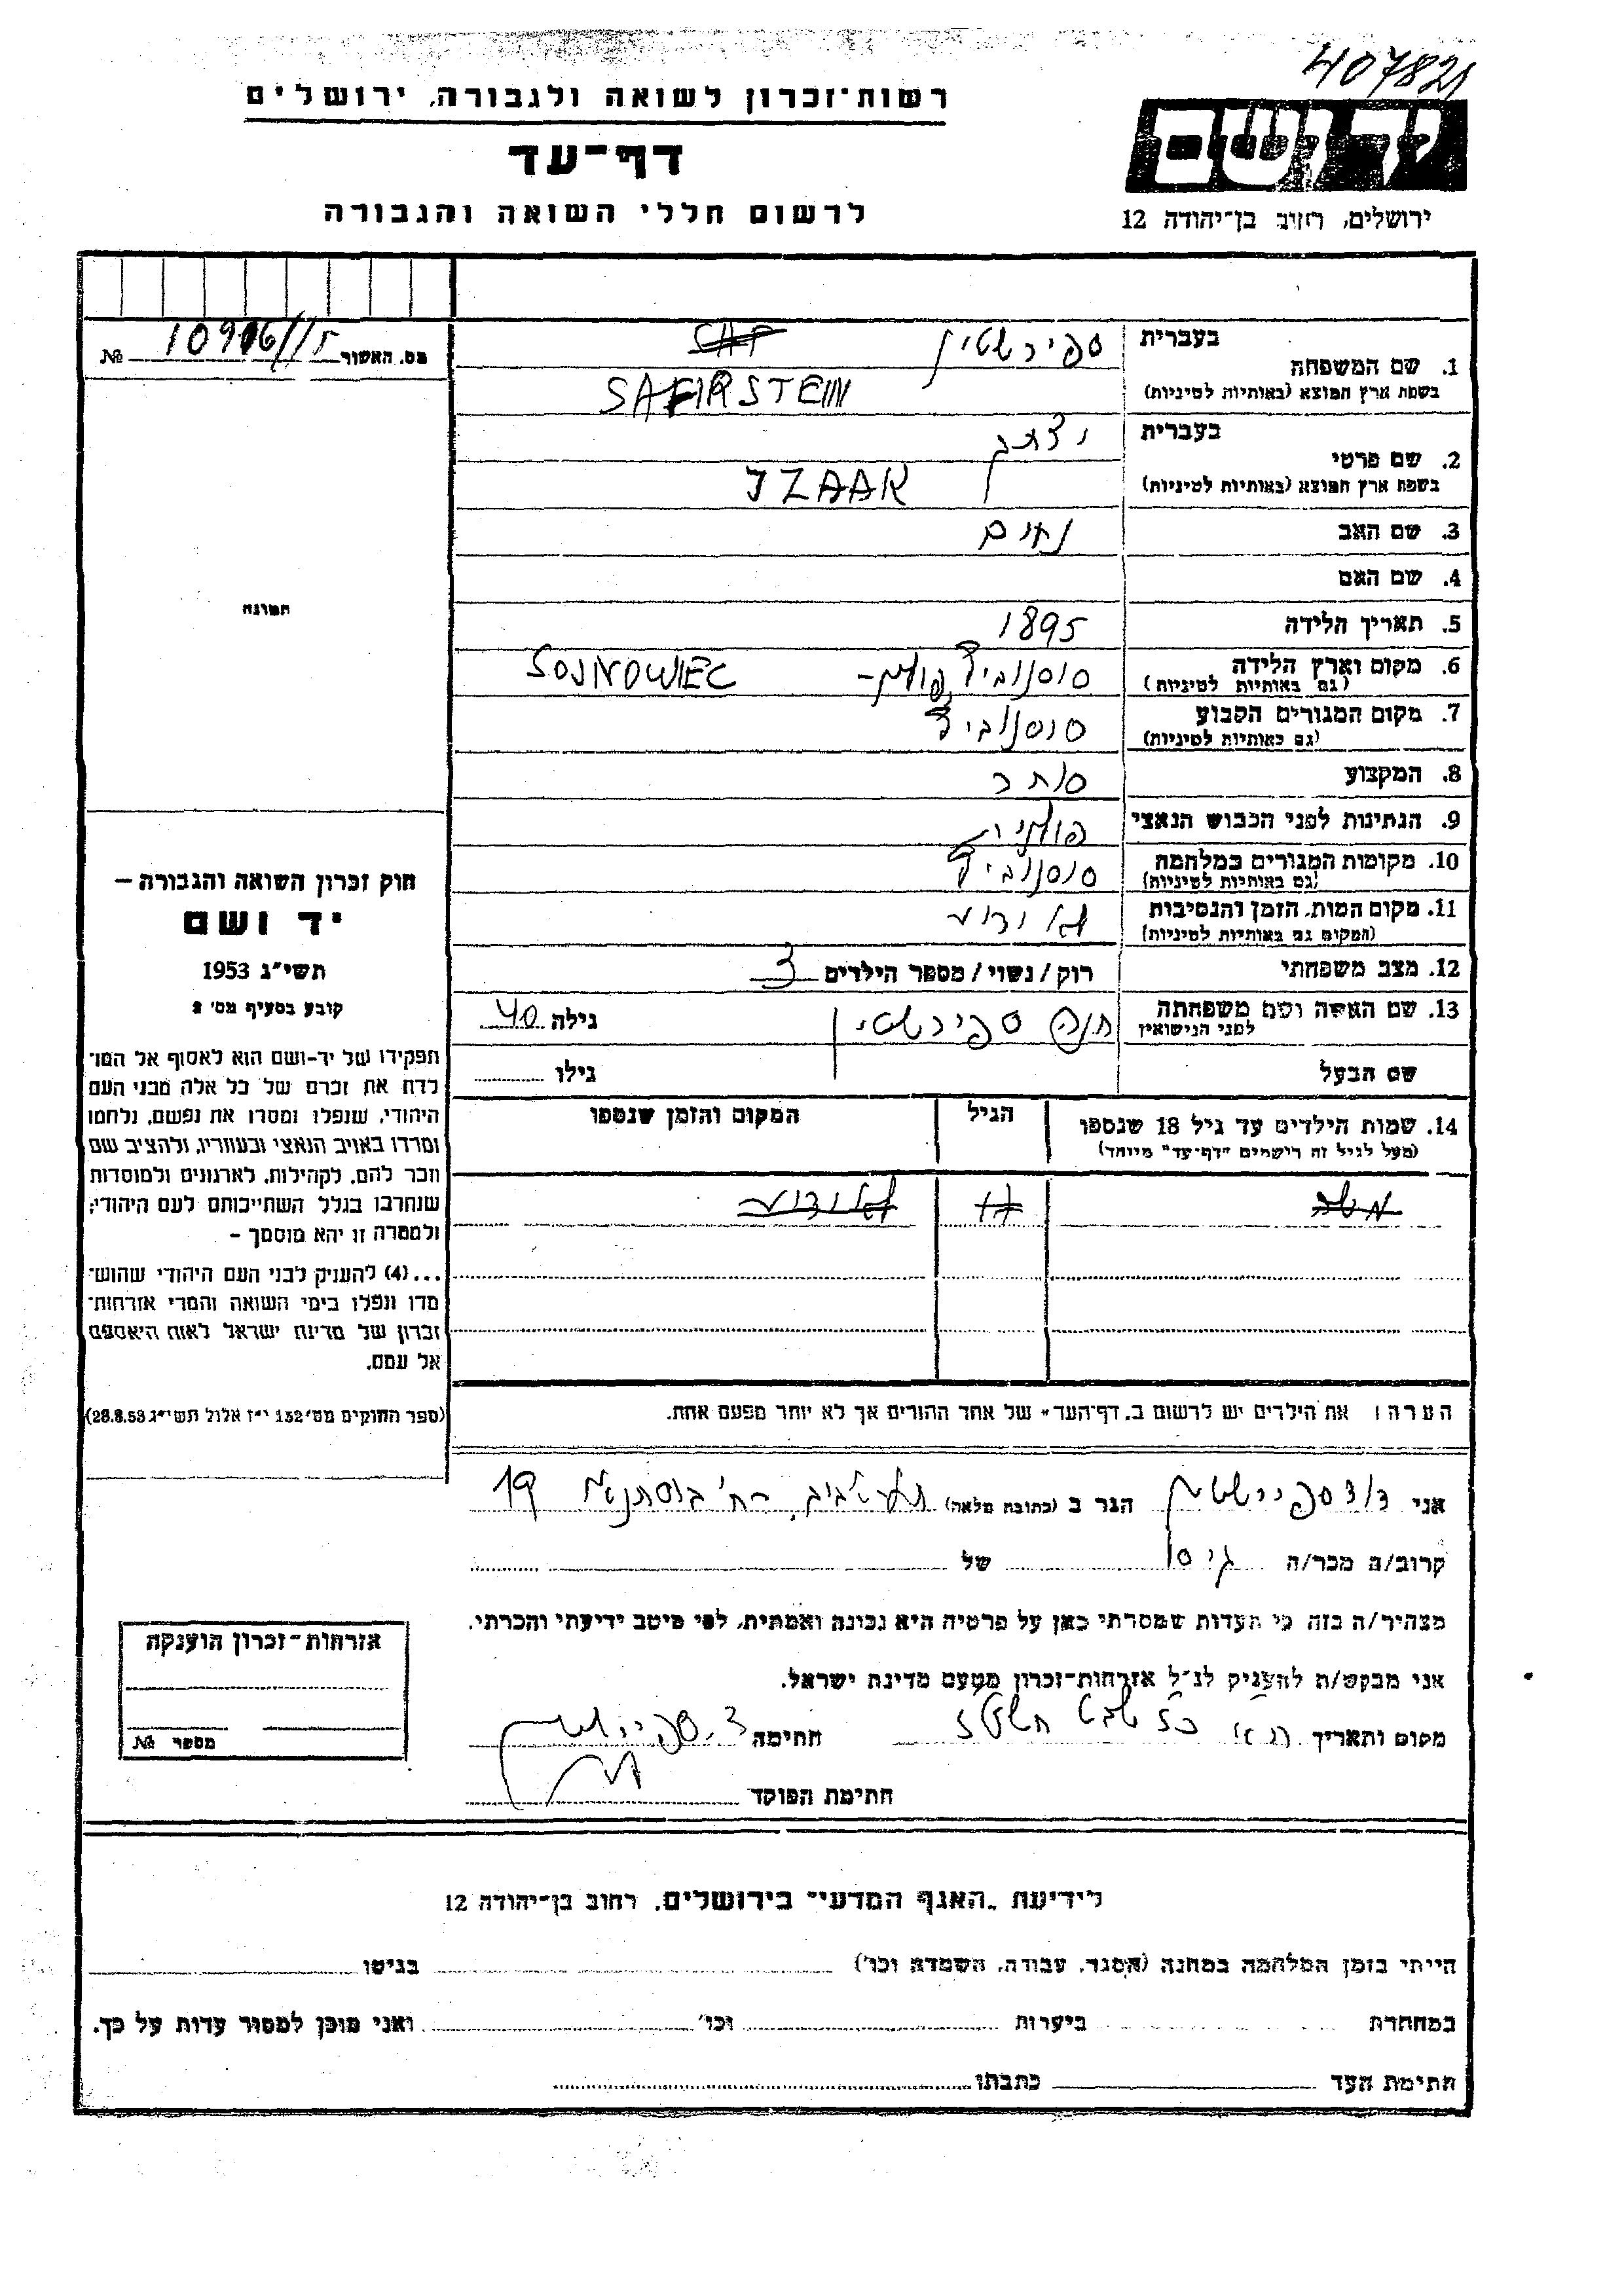 407821
רשות־זכרון לשואה ולגבורה, ירושלים
דף־עד
לרשום חללי השואה והגבורה
יד ושם
ירושלים, רחוב בן־יהודה 12
מס. האשור 10916/15 №
תמונה
1. שם המשפחה
בעברית ספירשטין
בשפת ארץ המוצא (באותיות לטיניות) SAFIRSTEIN
2. שם פרטי
בעברית יצחק
בשפת ארץ המוצא (באותיות לטיניות) IZAAK
3. שם האב נחום
4. שם האם
5. תאריך הלידה 1895
6. מקום וארץ הלידה סוסנוביץ פולין – SOSNOWIEC
(גם באותיות לטיניות)
7. מקום המגורים הקבוע סוסנוביץ
(גם באותיות לטיניות)
8. המקצוע סוחר
9. הנתינות לפני הכבוש הנאצי פולנית
10. מקומות המגורים במלחמה סוסנוביץ
(גם באותיות לטיניות)
11. מקום המות, הזמן והנסיבות לא ידוע
(המקום גם באותיות לטיניות)
12. מצב משפחתי רוק/נשוי/מספר הילדים 3
13. שם האשה ושם משפחתה חנה ספירשטין גילה 40
לפני הנישואין
שם הבעל גילו
14. שמות הילדים עד גיל 18 שנספו הגיל המקום והזמן שנספו
(מעל לגיל זה רישמים "דף־עד" מיוחד)
לא ידוע
הערה: את הילדים יש לרשום ב„דף־העד" של אחד ההורים אך לא יותר מפעם אחת.
חוק זכרון השואה והגבורה –
יד ושם
תשי"ג 1953
קובע בסעיף מס' 2
תפקידו של יד-ושם הוא לאסוף אל המו־
לדת את זכרם של כל אלה מבני העם
היהודי, שנפלו ומסרו את נפשם, נלחמו
ומרדו באויב הנאצי ובעוזריו, ולהציב שם
וזכר להם, לקהילות, לארגונים ולמוסדות
שנחרבו בגלל השתייכותם לעם היהודי;
ולמטרה זו יהא מוסמך –
...(4) להעניק לבני העם היהודי שהוש־
מדו ונפלו בימי השואה והמרי אזרחות־
זכרון של מדינת ישראל לאות היאספם
אל עמם.
(ספר החוקים מס' 132 י"ז אלול תשי"ג 28.8.53)
אני דוד ספירשטין הגר ב (כתובת מלאה) תל אביב, רח' בוסתנאי 19
קרוב/ה מכר/ה גיסו של
מצהיר/ה בזה כי העדות שמסרתי כאן על פרטיה היא נכונה ואמתית, לפי מיטב ידיעתי והכרתי.
אני מבקש/ת להעניק לנ"ל אזרחות־זכרון מטעם מדינת ישראל.
מקום ותאריך שבט חתימה ד. ספירשטין
חתימת הפוקד
אזרחות־זכרון הוענקה
מספר №
לידיעת „האגף המדעי" בירושלים, רחוב בן־יהודה 12
הייתי בזמן המלחמה במחנה (הסגר, עבודה, השמדה וכו') בגיטו
במחתרת ביערות וכו' ואני מוכן למסור עדות על כך.
חתימת העד כתבתו